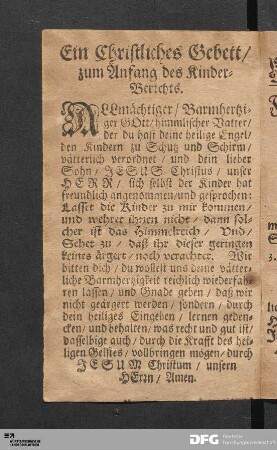 Ein Christliches Gebett/
zum Anfang des Kinder-
Berichts.
ALLmächtiger/ Barmhertzi-
ger GOtt/ himmlischer Vatter/
der du hast deine heilige Engel/
den Kindern zu Schutz und Schirm/
vätterlich verordnet/ und dein lieber
Sohn/ JESUS Christus/ unser
HERR/ sich selbst der Kinder hat
freundlich angenommen/ und gesprochen:
Lasset die Kinder zu mir kommen/
und wehret ihnen nicht/ dann sol-
cher ist das Himmelreich/ Und/
Sehet zu/ daß ihr dieser geringen
keines ärgert/ noch verachtet. Wir
bitten dich/ du wollest uns deine vätter-
liche Barmhertzigkeit reichlich wiederfah-
ren lassen/ und Gnade geben/ daß wir
nicht geärgert werden/ sondern/ durch
dein heiliges Eingeben/ lernen geden-
cken/ und behalten/ was recht und gut ist/
dasselbige auch/ durch die Krafft des hei-
ligen Geistes/ vollbringen mögen/ durch
JESUM Christum/ unsern
HErrn/ Amen.
DFG